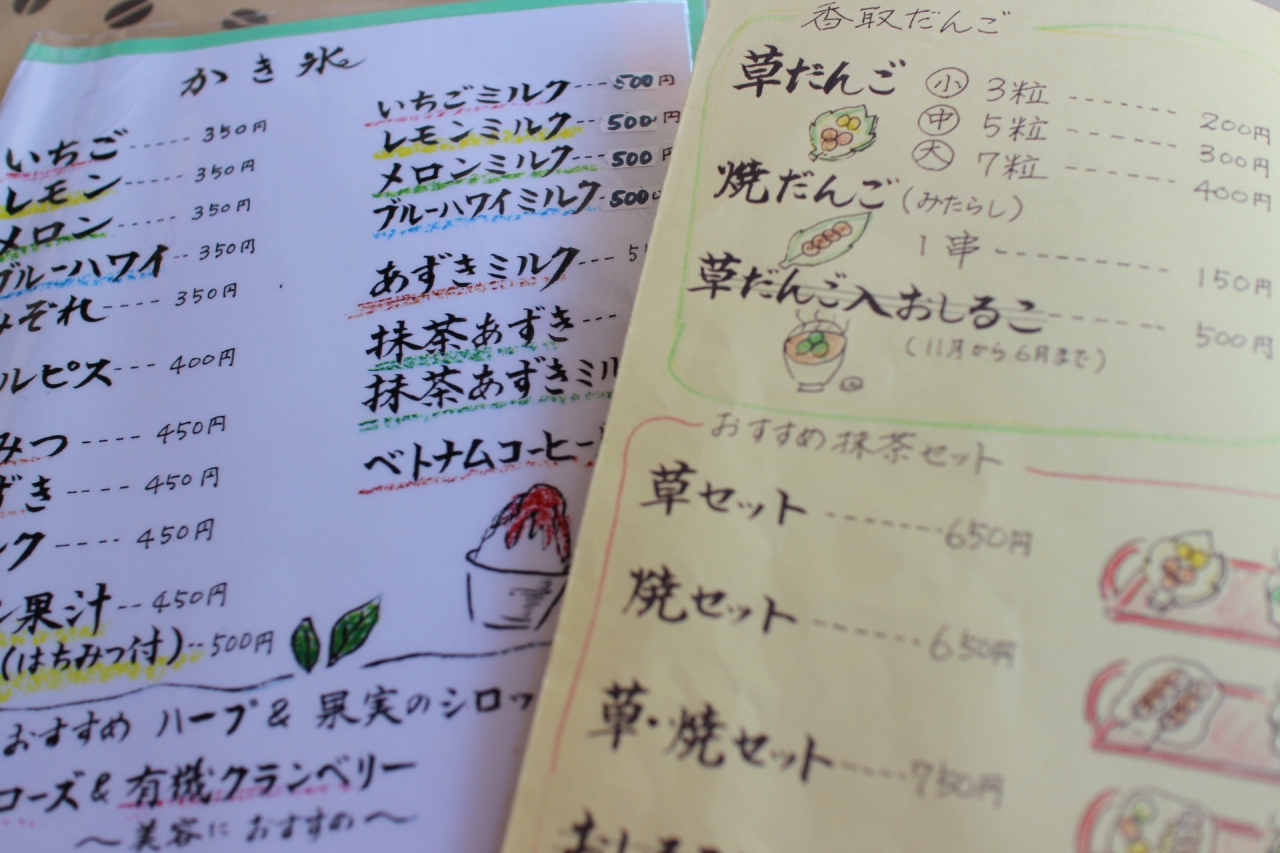 かき氷
いちご ----- 350円
レモン ---- 350円
メロン ---- 350円
ブルーハワイ -- 350円
みぞれ --- 350円
ルピス --- 400円
みつ ---- 450円
ずき ---- 450円
ク ---- 450円
果汁 -- 450円
(はちみつ付) -- 500円
いちごミルク --- 500円
レモンミルク --- 500円
メロンミルク --- 500
ブルーハワイミルク -- 500
あずきミルク ---
抹茶あずき ---
抹茶あずきミル
ベトナムコーヒー
おすすめ ハーブ & 果実のシロッ
ローズ & 有機クランベリー
〜美容に おすすめ〜
香取だんご
草だんご 小 3粒 ------- 200円
中 5粒 ------- 300円
大 7粒 ------- 400円
焼だんご (みたらし)
1串 --------- 150円
草だんご入おしるこ ------ 500円
(11月から6月まで)
おすすめ抹茶セット
草セット ------- 650円
焼セット ------- 650円
草・焼セット ---- 750円
おしるこ